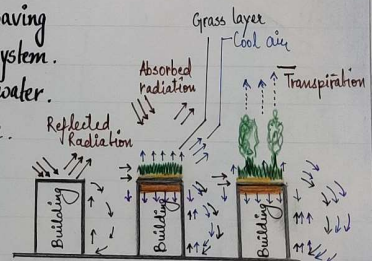 aving
ystem.
water.
Grass layer
Cool air
Absorbed
radiation
Transpiration
Reflected
Radiation
Building
Building
Building